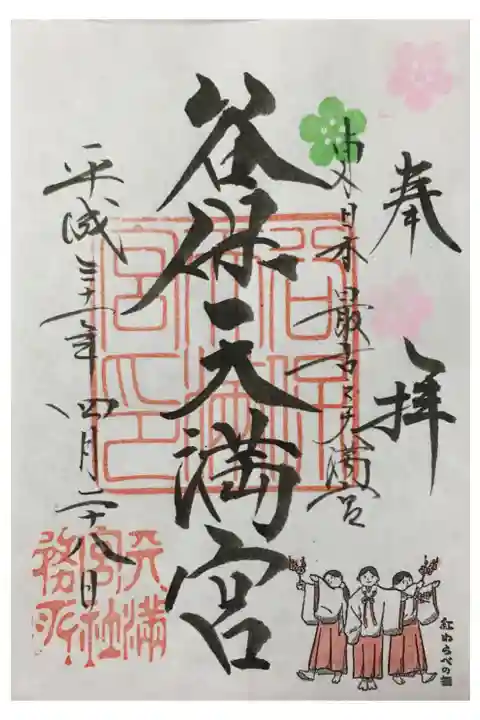 奉拝
東日本最古之天満宮
谷保天満宮
平成三十一年四月二十八日
谷保天満宮之印
天満宮社務所
紅わらべの舞